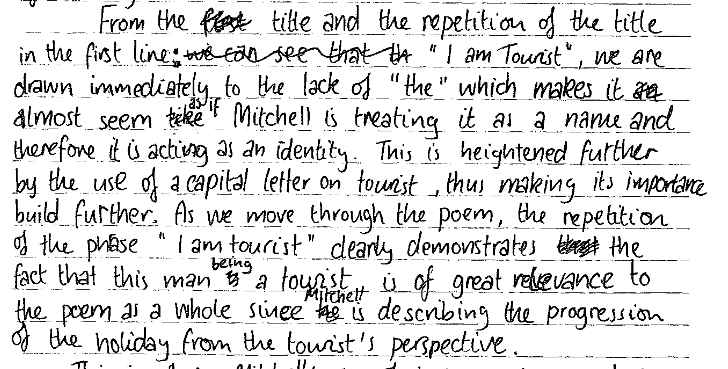 From the first title and the repetition of the title
in the first line: we can see that th "I am Tourist", we are
drawn immediately to the lack of "the" which makes it
almost seem like as if Mitchell is treating it as a name and
therefore it is acting as an identity. This is heightened further
by the use of a capital letter on tourist, thus making its importance
build further. As we move through the poem, the repetition
of the phase "I am tourist" clearly demonstrates the
fact that this man is being a tourist is of great relevance to
the poem as a whole since he Mitchell is describing the progression
of the holiday from the tourist's perspective.